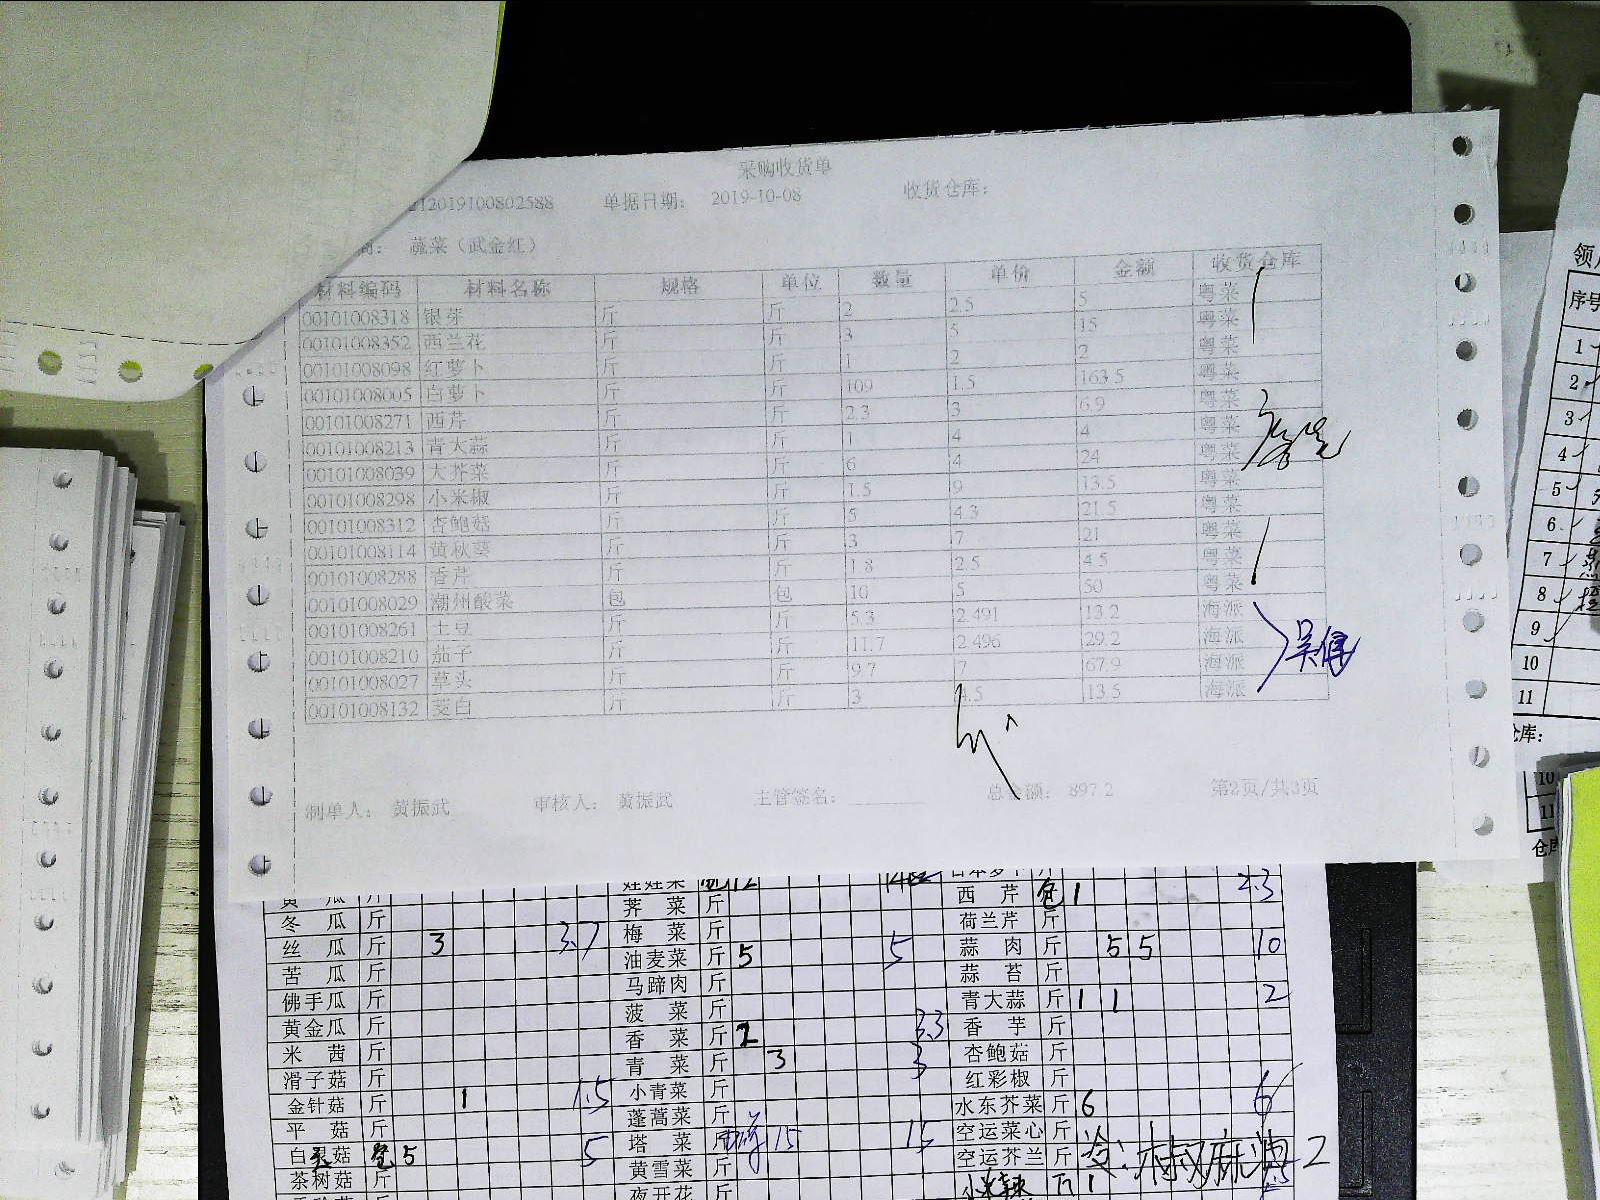 采购收货单
212019100802588 单据日期: 2019-10-08 收货仓库:
商: 蔬菜（武金红）
材料编码 材料名称 规格 单位 数量 单价 金额 收货仓库
00101008318 银芽 斤 斤 2 2.5 5 粤菜
00101008352 西兰花 斤 斤 3 5 15 粤菜
00101008098 红萝卜 斤 斤 1 2 2 粤菜
00101008005 白萝卜 斤 斤 109 1.5 163.5 粤菜
00101008271 西芹 斤 斤 2.3 3 6.9 粤菜
00101008213 青大蒜 斤 斤 1 4 4 粤菜
00101008039 大芥菜 斤 斤 6 4 24 粤菜
00101008298 小米椒 斤 斤 1.5 9 13.5 粤菜
00101008312 杏鲍菇 斤 斤 5 4.3 21.5 粤菜
00101008114 黄秋葵 斤 斤 3 7 21 粤菜
00101008288 香芹 斤 斤 1.8 2.5 4.5 粤菜
00101008029 潮州酸菜 包 包 10 5 50 粤菜
00101008261 土豆 斤 斤 5.3 2.491 13.2 海派
00101008210 茄子 斤 斤 11.7 2.496 29.2 海派
00101008027 草头 斤 斤 9.7 7 67.9 海派
00101008132 茭白 斤 斤 3 4.5 13.5 海派
制单人: 黄振武 审核人: 黄振武 主管签名: 总金额: 897.2 第2页/共3页
黄 瓜 斤 娃娃菜 12 日本萝卜 斤
冬 瓜 斤 荠 菜 斤 西 芹 包 1 2.3
丝 瓜 斤 3 3.7 梅 菜 斤 荷兰芹 斤
苦 瓜 斤 油麦菜 斤 5 5 蒜 肉 斤 5 5 10
佛手瓜 斤 马蹄肉 斤 蒜 苔 斤
黄金瓜 斤 菠 菜 斤 青大蒜 斤 1 1 2
米 茜 斤 香 菜 斤 2 3.3 香 芋 斤
滑子菇 斤 青 菜 斤 3 3 杏鲍菇 斤
金针菇 斤 1 1.5 小青菜 斤 红彩椒 斤
平 菇 斤 蓬蒿菜 斤 水东芥菜 斤 6 6
白灵菇 包 5 5 塔 菜 斤 15 15 空运菜心 斤
茶树菇 斤 黄雪菜 斤 空运芥兰 斤
夜开花 斤 小米辣 斤 1
领
序号
1
2
3
4
5
6
7
8
9
10
11
仓库:
10
11
仓库